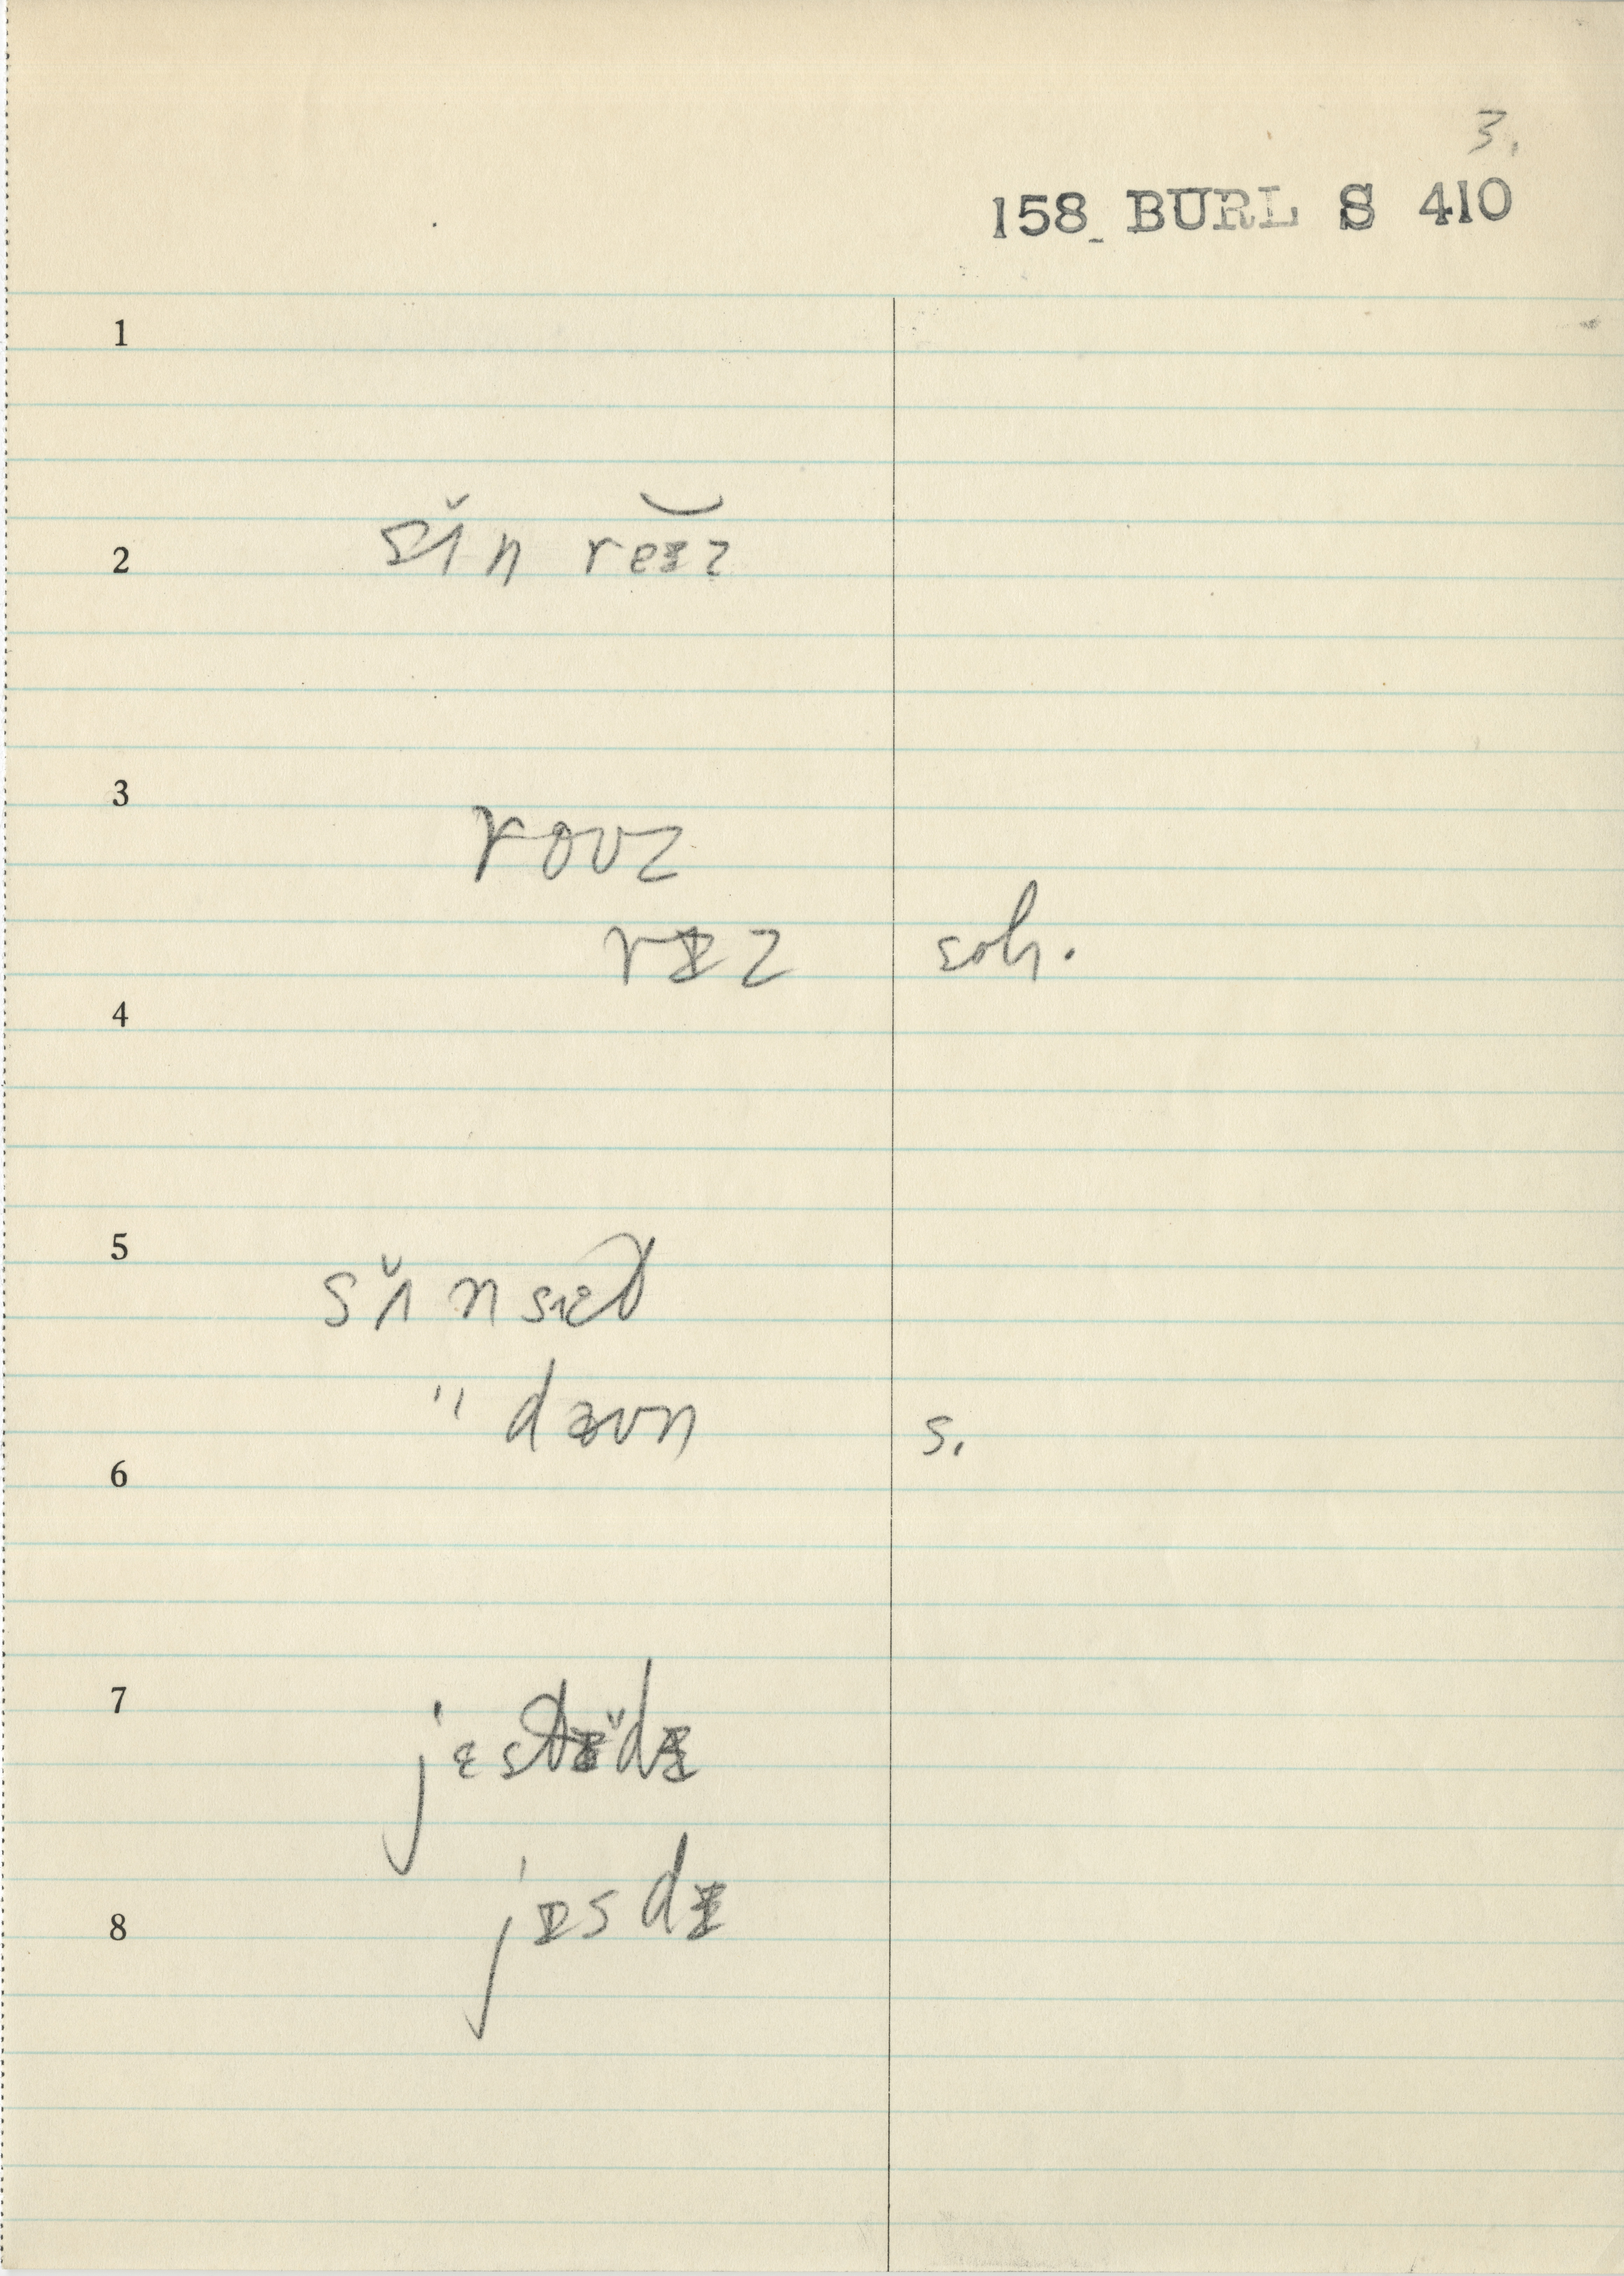 3.
158 BURL S 410
1
2 sɪ̆n reɪz
3
rouz
rɪz soh.
4
5
sɪ̆ nsɛt
" daun s.
6
7
jɛstɚdɪ
8 jɪsdɪ